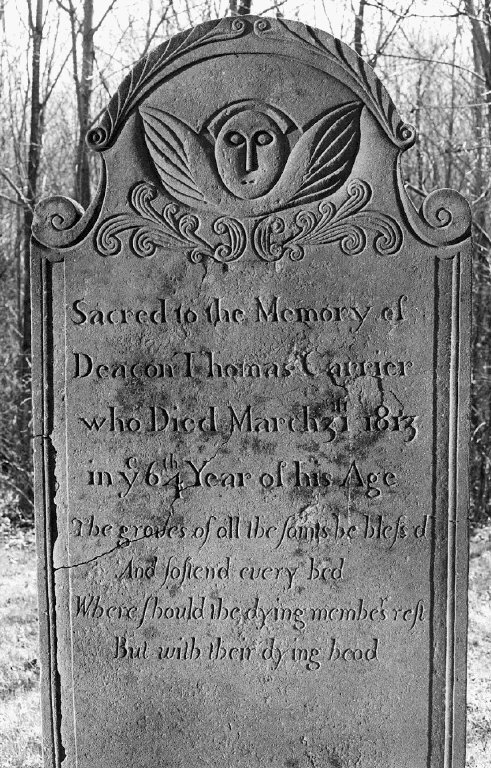 Sacred to the Memory of
Deacon Thomas Carrier
who Died March 31ᵗʰ 1813
in yᵉ 64ᵗʰ Year of his Age
The graves of all the ſaints he bleſs'd
And ſoftend every bed
Where ſhould the dying members reſt
But with their dying head